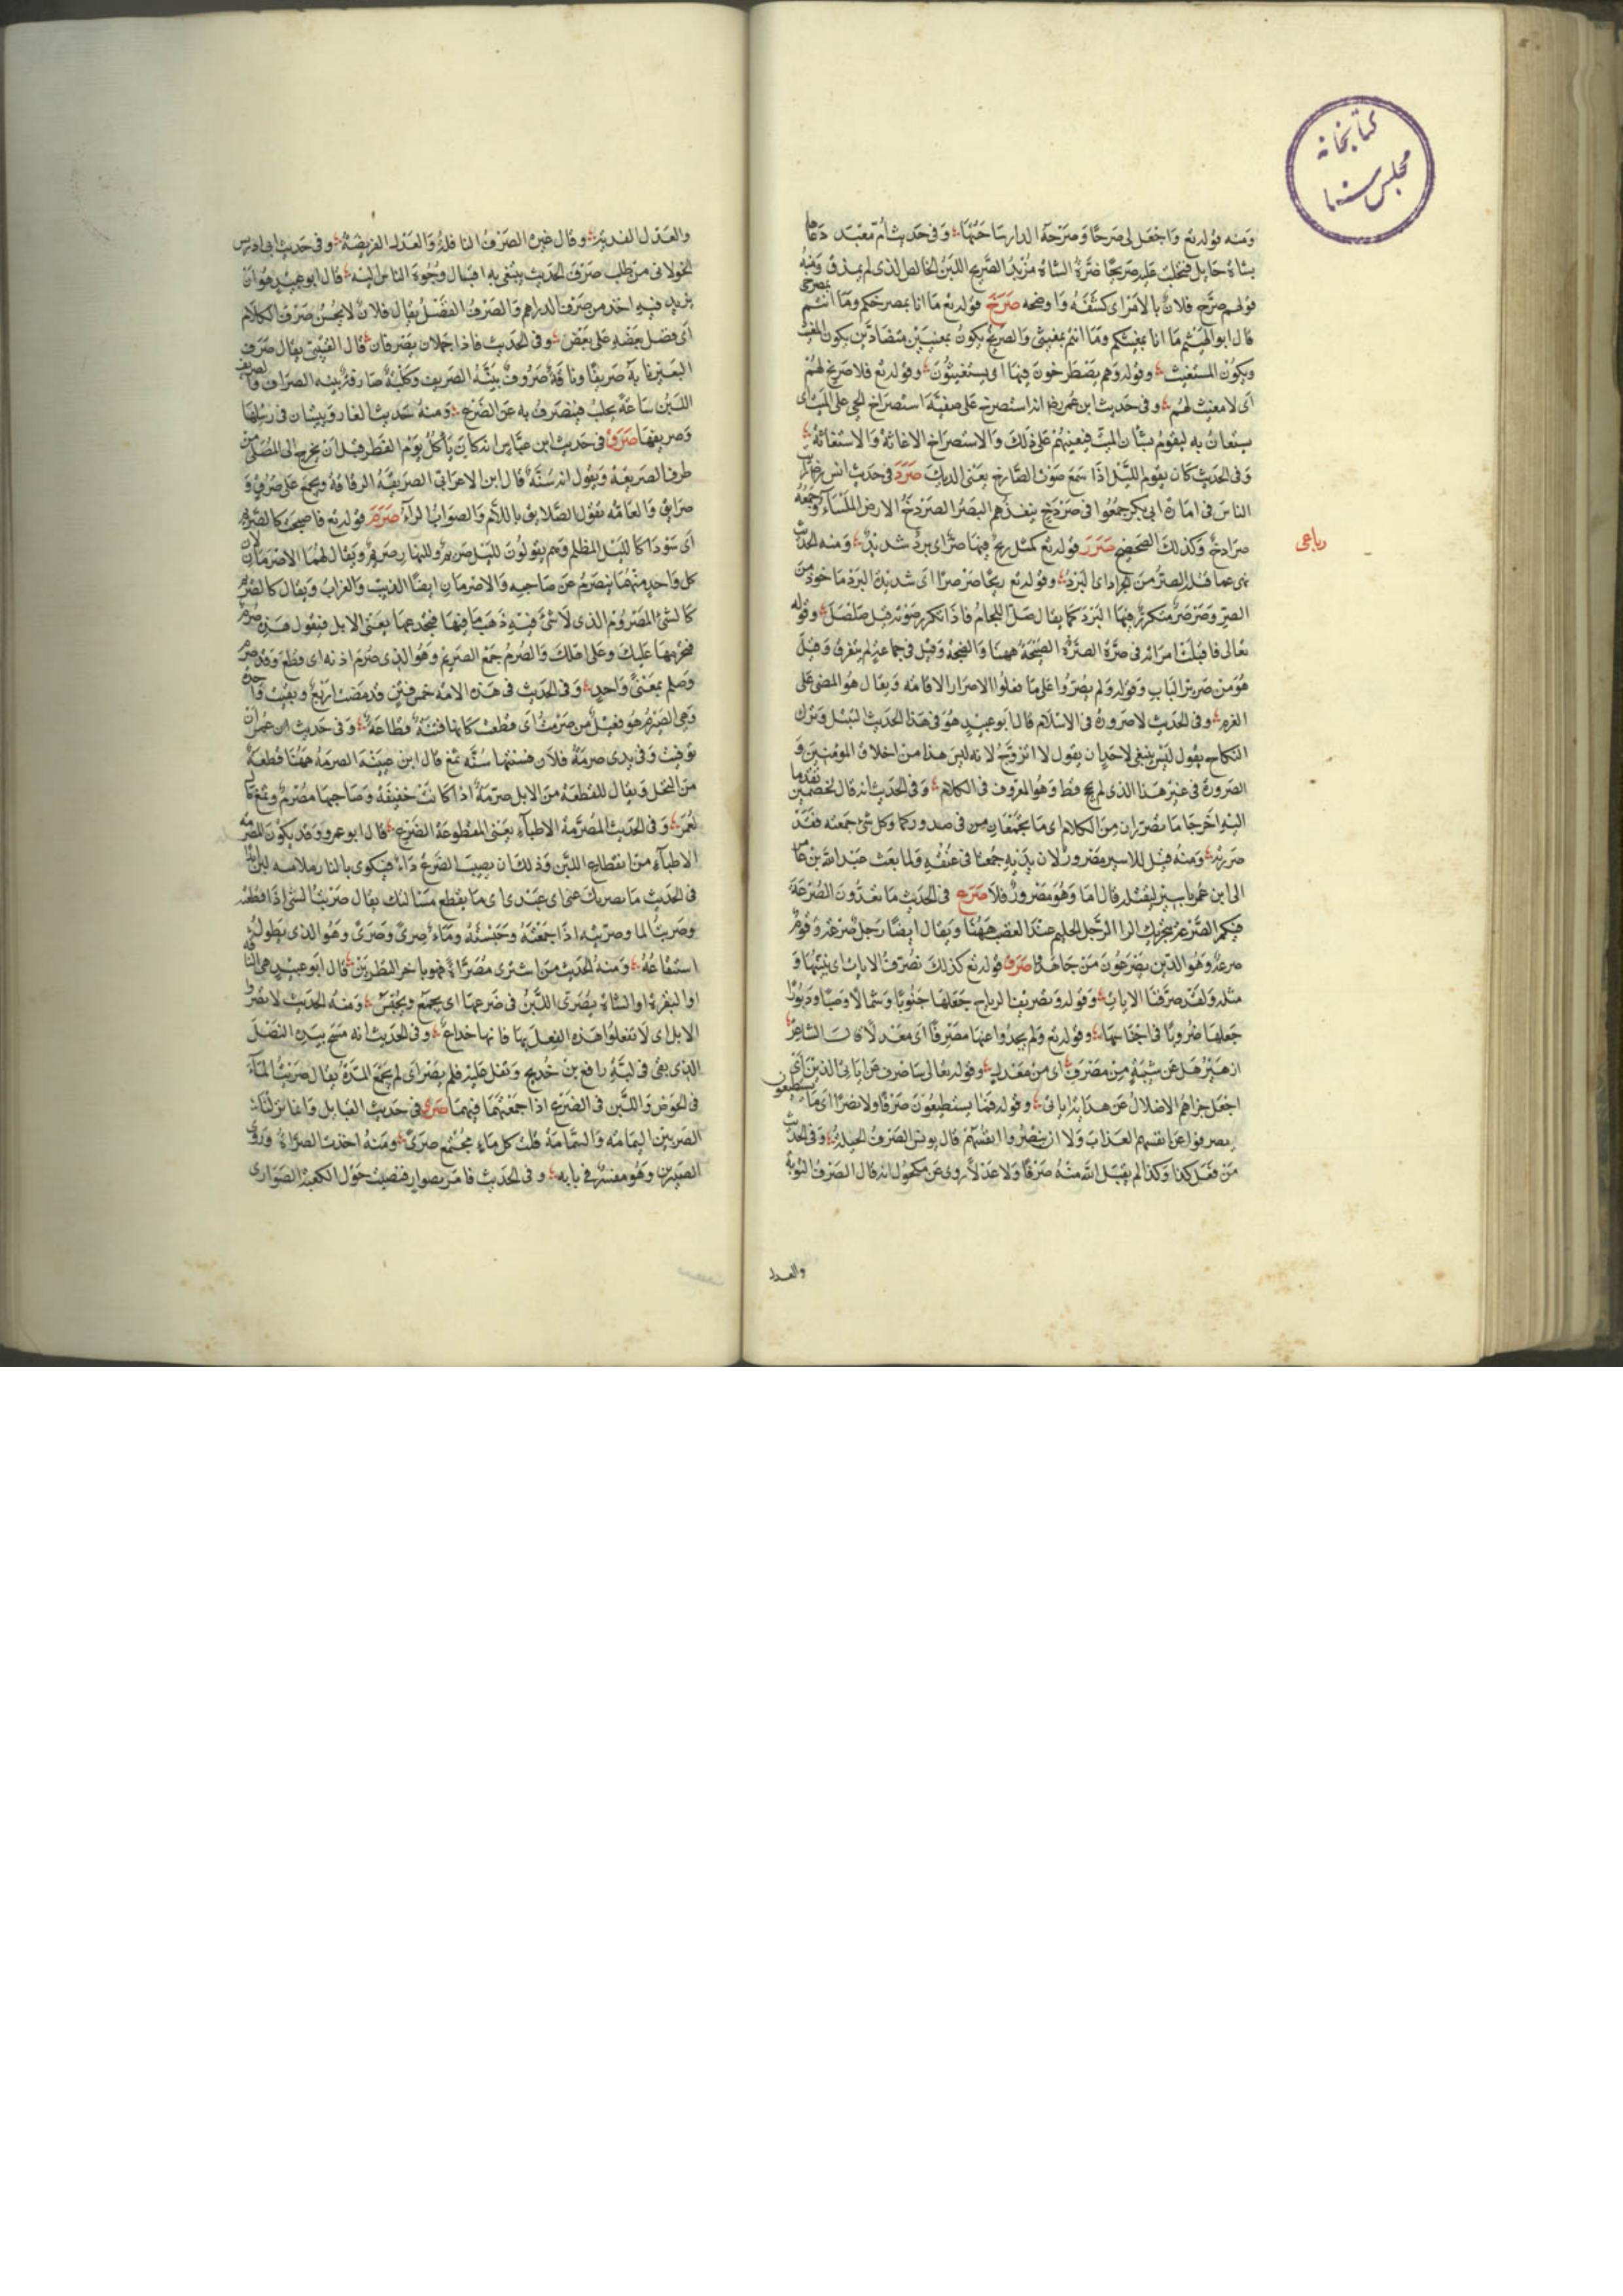 كتابخانه
مجلس سنا
ومنه قوله تع واجعل لى صرحا وصرحة الدار ساحتها وفى حديث ام معبد دعاها
بشاة حايل فتحلب عليه صريحا ضرة الشاة مزبد الصريح اللبن الخالص الذى لم يمذق ومنه
قولهم صرح فلان بالامر اى كشفه واوضحه صرخ قوله تع ما انا بمصرخكم وما انتم بمصرخى
قال ابو الهيثم ما انا بمغيثكم وما انتم بمغيثى والصريخ يكون بمعنيين متضادين يكون المغيث
ويكون المستغيث وقوله وهم يصطرخون فيها اى يستغيثون وقوله تع فلا صريخ لهم
اى لا مغيث لهم وفى حديث ابن عمر رضه انه استصرخ على صفية استصراخ الحى على الميت اى
يستعان به ليقوم بشان الميت فيعينهم على ذلك والاستصراخ الاغاثة والاستغاثة
وفى الحديث كان يقوم الليل اذا سمع صوت الصارخ يعنى الديك صرد فى حديث انس رايت
الناس فى امارة ابى بكر جمعوا فى صردخ ينفذهم البصر الصردخ الارض الملساء وجمعه
رباعى
صرادخ وكذلك الصحصح صرر قوله تع كمثل ريح فيها صر اى برد شديد ومنه الحديث
نهى عما قتله الصر من الجراد اى البرد وقوله تع ريحا صرصرا اى شديدة البرد ماخوذ من
الصر وصرصر متكرر فيها البرد كما يقال صل اللجام فاذا تكرر صوته قيل صلصل وقوله
تعالى فاقبلت امراته فى صرة الصرة الصيحة ههنا والضجة وقيل فى جماعة لم يتفرق وقيل
هو من صرير الباب وقوله ولم يصروا على ما فعلوا الاصرار الاقامه ويقال هو المضى على
العزم وفى الحديث لا صرورة فى الاسلام قال ابو عبيد هو فى هذا الحديث التبتل وترك
النكاح يقول ليس ينبغى لاحد ان يقول لا اتزوج لانه ليس هذا من اخلاق المؤمنين و
الصرورة فى غير هذا الذى لم يحج قط وهو المعروف فى الكلام وفى الحديث انه قال لخصمين تقدما
اليه اخرجا ما تصرران من الكلام اى ما تجمعان من فى صدوركما وكل شئ جمعته فقد
صررته ومنه قيل للاسير مصرور لان يديه جمعتا فى عنقه ولما بعث عبد الله بن عامر
الى ابن عمر باسير ليقتله قال اما وهو مصرور فلا صرع فى الحديث ما تعدون الصرعة
فيكم الصرعة بتحريك الرا الرجل الحليم عند الغضب ههنا ويقال ايضا رجل صرعة وقوم
صرعة وهو الذين يصرعون من جاهدوا صرف قوله تع كذلك نصرف الايات اى نبينها و
مثله ولقد صرفنا الايات وقوله وتصريف الرياح جعلها جنوبا وشمالا وصبا ودبورا
جعلها ضروبا فى اجناسها وقوله تع ولم يجدوا عنها مصرفا اى معدلا قال الشاعر
ازهير هل عن شيبة من مصرف اى من معدل وقوله تعالى ساصرف عن اياتى الذين اى
اجعل جزاهم الاضلال عن هداية اياتى وقوله فما يستطيعون صرفا ولا نصرا اى ما يستطيعون
يصرفوا عن انفسهم العذاب ولا ان ينصروا انفسهم قال يونس الصرف الحيلة وفى الحديث
من فعل كذا وكذا لم يقبل الله منه صرفا ولا عدلا روى عن مكحول انه قال الصرف التوبة
والعدل
والعدل الفدية وقال غيره الصرف النافلة والعدل الفريضة وفى حديث ابى ادريس
الخولانى من طلب صرف الحديث يبتغى به اقبال وجوه الناس اليه قال ابو عبيد هو ان
يزيد فيه اخذ من صرف الدراهم والصرف الفضل يقال فلان لا يحسن صرف الكلام
اى فضل بعضه على بعض وفى الحديث فاذا جملان يصرفان قال القتيبى يقال صرف
البعير نابه صريفا وناقة صروف بينة الصريف وكلبة صارفة بينه الصراف والصريف
اللبن ساعة يحلب فينصرف به عن الضرع ومنه حديث الغار ويبيتان فى رسلها
وصريفها صرق فى حديث ابن عباس انه كان ياكل يوم الفطر قبل ان يخرج الى المصلى من
طرف الصريقة ويقول انه سنة قال ابن الاعرابى الصريقة الرقاقة ويجمع على صرق و
صرايق والعامة تقول الصلايق باللام والصواب الرآ صرم قوله تع فاصبحت كالصريم
اى سودا كالليل المظلم وهم يقولون لليل صريم وللنهار صريم ويقال لهما الاصرمان لان
كل واحد منهما ينصرم عن صاحبه والاصرمان ايضا الذيب والغراب ويقال كالصريم
كالشئ المصروم الذى لا شئ فيه ذهب ما فيها فتجدعها يعنى الابل فيقول هذه صرم
فتحرمها عليك وعلى اهلك والصرم جمع الصريم وهو الذى صرم اذنه اى قطع وقد صرم
وصلم بمعنى واحد وفى الحديث فى هذه الامة خمس فتن قد مضت اربع وبقيت واحدة
وهى الصيرم هو فيعل من صرمت اى قطعت كانها فتنة قطاعة وفى حديث ابن عمر ان
توفيت وفى يدى صرمة فلان فسنتها سنة ثمغ قال ابن عيينه الصرمة ههنا قطعة
من النخل ويقال للقطعة من الابل صرمة اذا كانت خفيفة وصاحبها مصرم وثمغ مال
لعمر وفى الحديث المصرمة الاطباء يعنى المقطوعة الضرع قال ابو عمرو وقد يكون المصرمة
الاطباء من انقطاع اللبن وذلك ان يصيب الضرع داء فيكوى بالنار فلا
فى الحديث ما يصريك عنى اى عبدى اى ما يقطع مسالتك يقال صريت الشئ اذا قطعته
وصريت الما وصريته اذا جمعته وحبسته وماء صرى وصرى وهو الذى يطول
استنقاعه ومنه الحديث من اشترى مصراة فهو باخر النظرين قال ابو عبيد هى الناقة
او البقرة او الشاة يصرى اللبن فى ضرعها اى يجمع ويحبس ومنه الحديث لا تصروا
الابل اى لا تفعلوا هذه الفعل بها فانها خداع وفى الحديث انه مسح بيده النصل
الذى بقى فى لبة رافع بن خديج وتفل عليه فلم يصر اى لم يجمع المدة يقال صريت الماء
فى الحوض واللبن فى الضرع اذا جمعتهما فيهما صرى فى حديث القبايل وانما نزلنا
الصريين اليمامه والسمامة قلت كل ماء مجتمع صرى ومنه اخذت الصراة وروى
الصيرين وهو مفسر فى بابه وفى الحديث فامر بصوار فنصبت حول الكعبة الصوارى